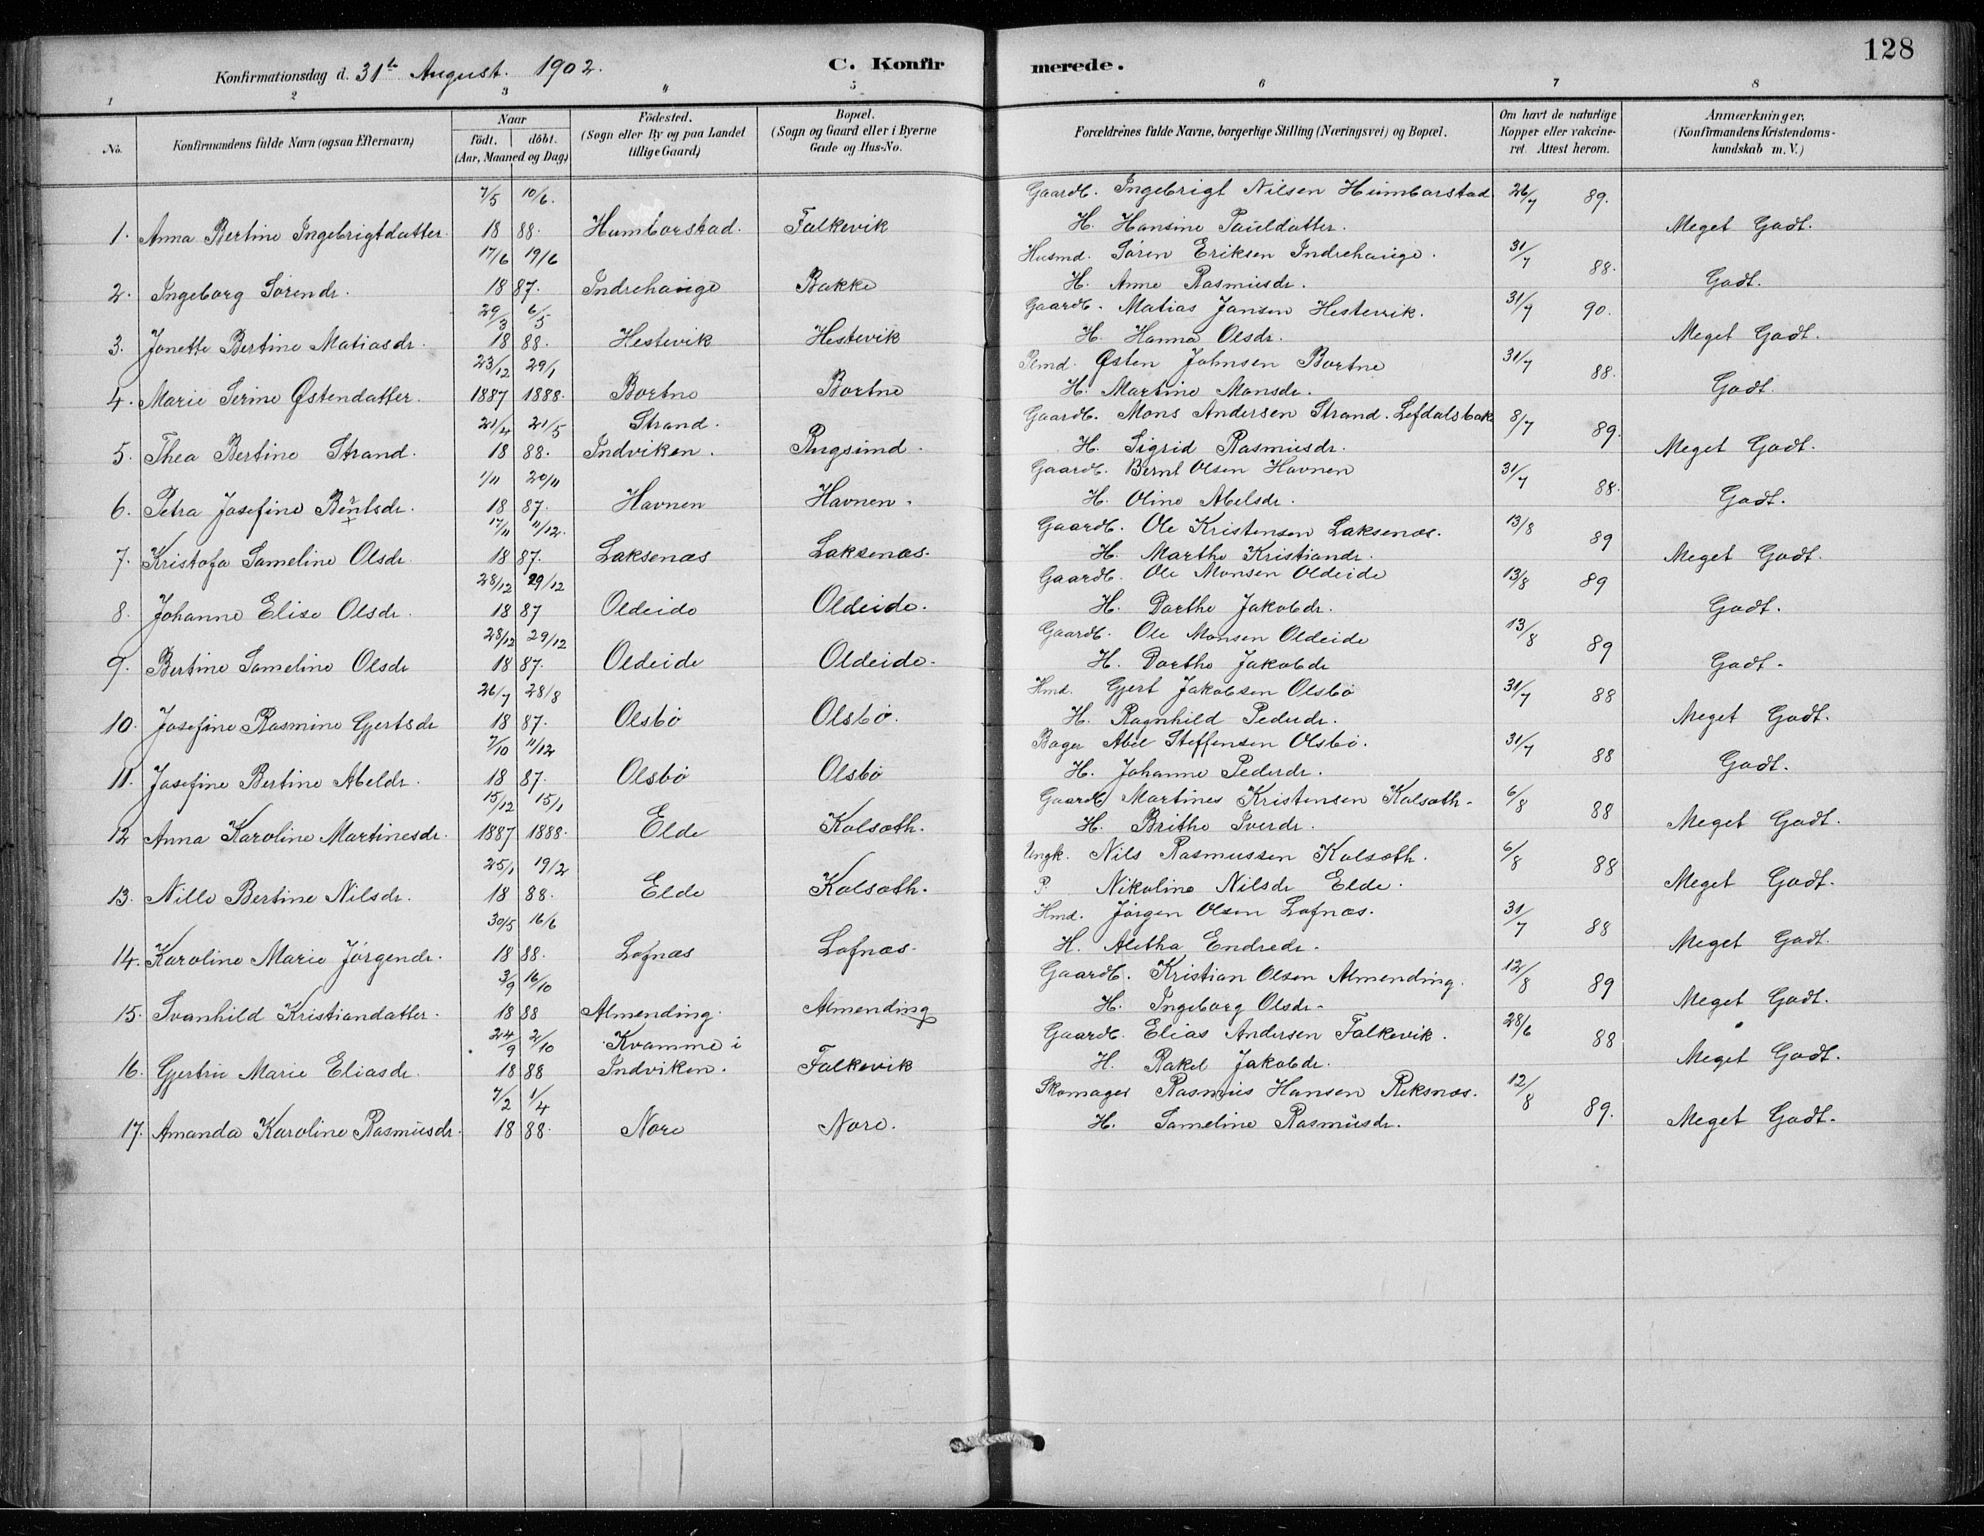 128
Konfirmationsdag d. 31te August. 1902. C. Konfirmerede.
1 2 3 4 5 6 7 8
No. Konfirmandens fulde Navn (ogsaa Efternavn) Naar födt. döbt. (Aar, Maaned og Dag) Födested. (Sogn eller By og paa Landet tillige Gaard) Bopæl. (Sogn og Gaard eller i Byerne Gade og Hus-No. Forældrenes fulde Navne, borgerlige Stilling (Næringsvei) og Bopæl. Om havt de naturlige Kopper eller vakcineret. Attest herom. Anmærkninger, (Konfirmandens Kristendomskundskab m. V.)
7/5 10/6. Gaardb. Ingebrigt Nilsen Humborstad 26/7 89.
1. Anna Bertine Ingebrigtdatter. 18 88. Humborstad. Falkevik H. Hansine Pauldatter. Meget Godt.
17/6 19/6 Husmd. Sören Eriksen Indrehauge. 31/7 88.
2. Ingeborg Sörendr. 18 87. Indrehauge Bakke H. Anne Rasmusdr. Godt.
29/3 6/5 Gaardb. Matias Jansen Hestevik. 31/7 90.
3. Janette Bertine Matiasdr. 18 88. Hestevik Hestevik H. Hanna Olsdr. Meget Godt.
23/12 29/1 Østen Johnsen Bortne 31/7 88.
4. Marie Serine Østendatter. 1887 1888. Bortne Bortne H. Martine Monsdr. Godt.
21/4 21/5 Strand. Gaardb. Mons Andersen Strand. Lefdalsbak 8/7 89.
5. Thea Bertine Strand. 18 88. Indviken. Rugsund. H. Sigrid Rasmusdr. Meget Godt.
1/11 20/11 Gaardb. Bernt Olsen Havnen 31/7 88.
6. Petra Josefine Berntsdr. 18 87. Havnen Havnen. H. Oline Abelsdr. Godt.
17/11 11/12. Gaardb. Ole Kristensen Laksenæs. 13/8 89
7. Kristofa Sameline Olsdr. 18 87. Laksenæs Laksenæs. H. Marthe Kristiandr. Meget Godt.
28/12 29/12 Gaardb. Ole Monsen Oldeide 13/8 89
8. Johanne Elise Olsdr. 18 87 Oldeide Oldeide. H. Dorthe Jakobdr. Godt.
28/12 29/12 Gaardb. Ole Monsen Oldeide 13/8 89
9. Bertine Sameline Olsdr 18 87. Oldeide Oldeide. H. Dorthe Jakobdr Godt.
26/7 28/8 Hmd. Gjert Jakobsen Olsbö 31/7 88
10. Josefine Rasmine Gjertsdr 18 87. Olsbö Olsbö. H. Ragnhild Pederdr. Meget Godt.
7/10 11/12 Bager Abel Steffensen Olsbö. 31/7 88
11. Josefine Bertine Abeldr. 18 87. Olsbö Olsbö H. Johanne Pederdr. Godt.
15/12 15/1 Gaardb Martines Kristensen Kalsæth. 6/8 88
12 Anna Karoline Martinesdr. 1887 1888. Elde Kalsæth. H. Brithe Iverdr. Meget Godt.
25/1 19/2 Ungk. Nils Rasmussen Kalsæth. 6/8 88
13. Nille Bertine Nilsdr. 18 88. Elde Kalsæth. P. Nikoline Nilsdr Elde. Meget Godt.
30/5 16/6 Hmd. Jörgen Olsen Lofnæs. 31/7 88
14. Karoline Marie Jörgendr. 18 88. Lofnæs Lofnæs. H. Aletha Endredr. Meget Godt.
3/9 16/10 Gaardb. Kristian Olsen Almending. 12/8 89
15. Svanhild Kristiandatter. 18 88 Almending. Almending H. Ingeborg Olsdr. Meget Godt.
24/9 2/10 Kvamme i Gaardb. Elias Andersen Falkevik. 28/6 88
16. Gjertrie Marie Eliasdr. 18 88 Indviken. Falkevik H. Rakel Jakobdr. Meget Godt.
7/2 1/4 Skomager Rasmus Hansen Reksnæs. 12/8 89.
17. Amanda Karoline Rasmusdr. 18 88. Nore Nore. H. Sameline Rasmusdr. Meget Godt.